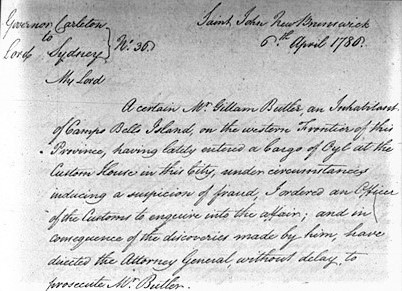 Governor Carleton
to
Lord Sydney
No. 36.
Saint John New Brunswick
6.th April 1786.
My Lord
A certain Mr. Gillam Butler, an Inhabitant
of Campo Bello Island, on the western Frontier of this
Province, having lately entered a Cargo of Oyl at the
Custom House in this City, under circumstances
inducing a suspicion of fraud, I ordered an Officer
of the Customs to enquire into the affair; and in
consequence of the discoveries made by him, have
directed the Attorney General, without delay, to
prosecute Mr. Butler.